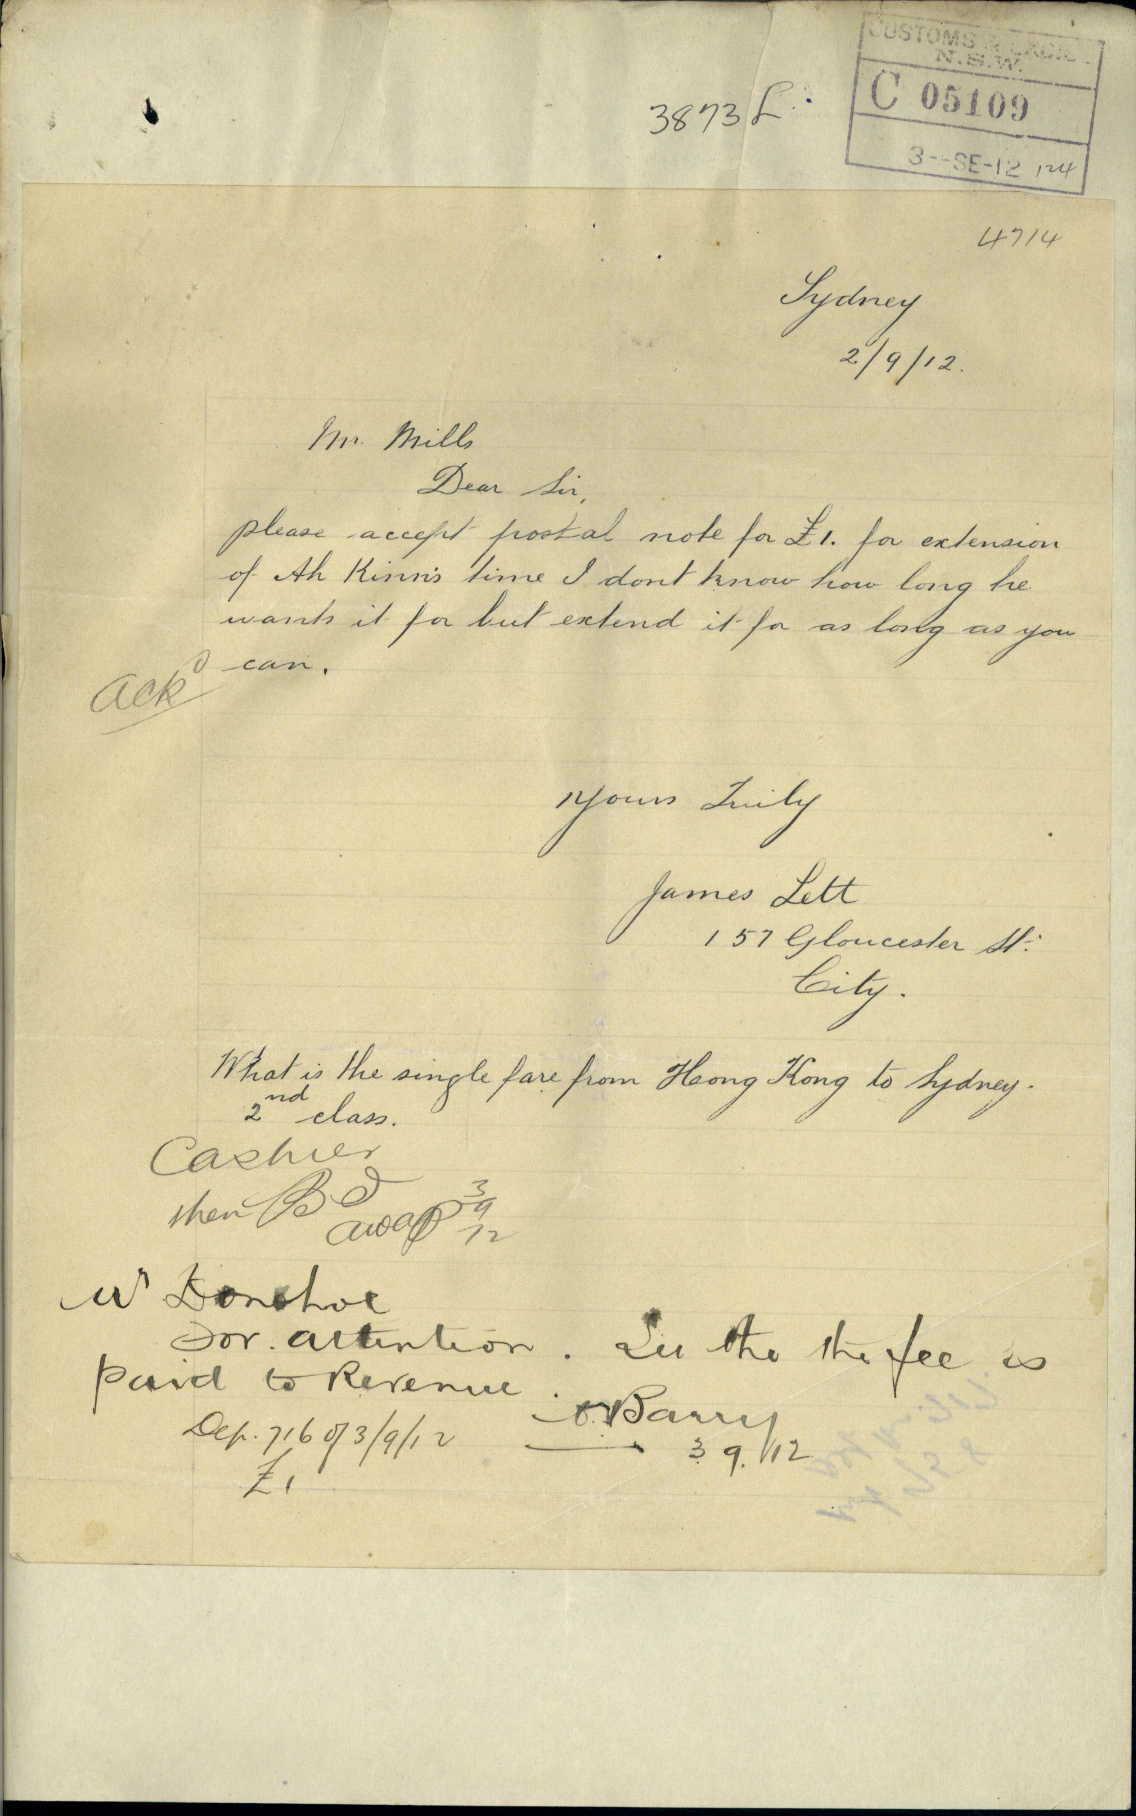 CUSTOMS & EXCISE
N.S.W.
C 05109
3--SE-12
3873
4714
Sydney
2/9/12.
Mr. Mills
Dear Sir,
please accept postal note for £1. for extension
of Ah Kinn's time I dont know how long he
wants it for but extend it for as long as you
can.
Ackd
Yours Truly
James Lett
157 Gloucester St.
City.
What is the single fare from Hong Kong to Sydney.
2nd class.
Cashier
then
3
9
12
Mr Donohoe
For attention. The the fee is
paid to Revenue.
Barry
3 9. 12
Dep. 716 of 3/9/12
£1